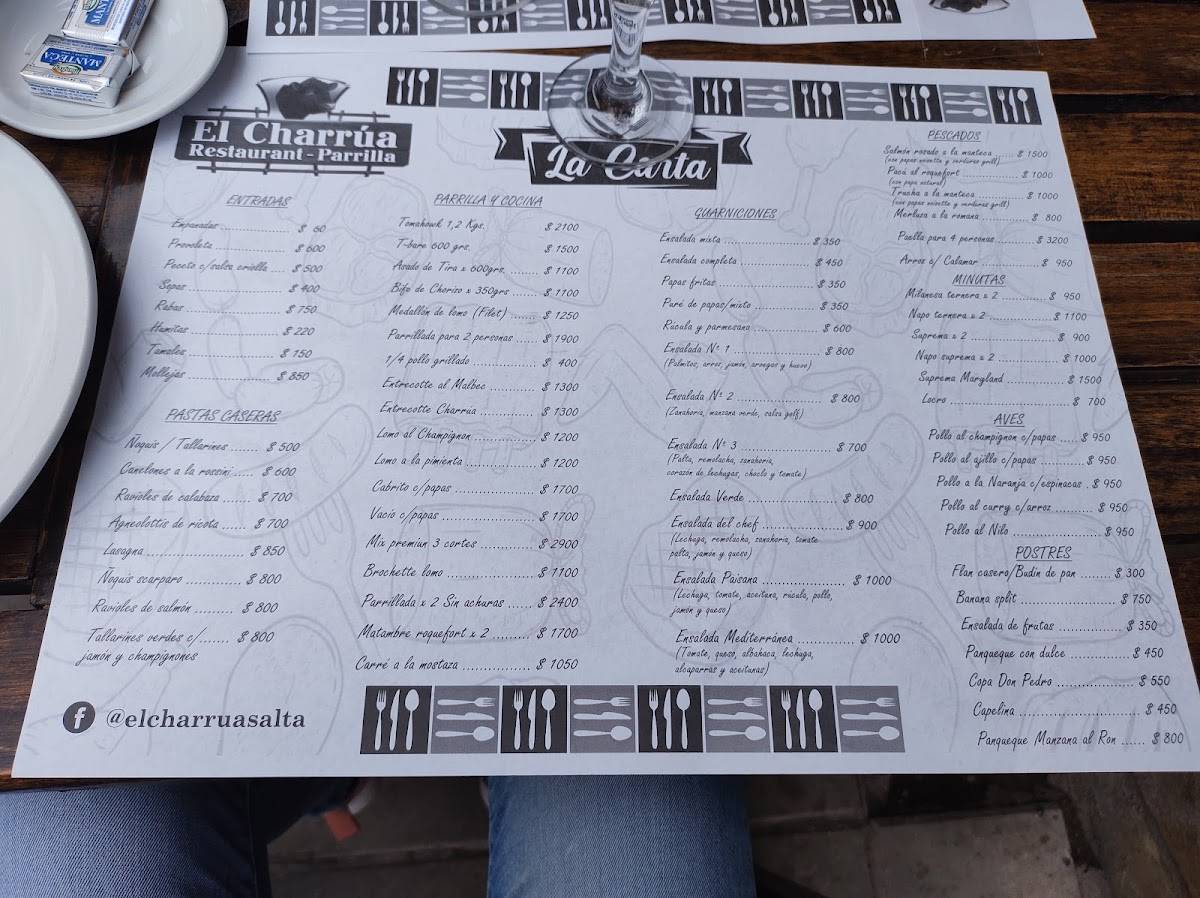 MANTECA
El Charrúa
Restaurant - Parrilla
La Carta
ENTRADAS
Empanadas ........ $ 60
Provoleta ........ $ 600
Peceto c/salsa criolla .... $ 500
Sopas ........ $ 400
Rabas ........ $ 750
Humitas ........ $ 220
Tamales ........ $ 150
Mollejas ........ $ 850
PASTAS CASERAS
Ñoquis / Tallarines ....... $ 500
Canelones a la rossini ..... $ 600
Ravioles de calabaza ....... $ 700
Agneolottis de ricota ...... $ 700
Lasagna ........ $ 850
Ñoquis scarparo ........ $ 800
Ravioles de salmón ......... $ 800
Tallarines verdes c/....... $ 800
jamón y champignones
@elcharruasalta
PARRILLA Y COCINA
Tomahouk 1,2 Kgs. $ 2100
T-bare 600 grs. $ 1500
Asado de Tira x 600grs. ........ $ 1100
Bife de Chorizo x 350grs ...... $ 1100
Medallón de lomo (Filet) ...... $ 1250
Parrillada para 2 personas ..... $ 1900
1/4 pollo grillado ........ $ 400
Entrecotte al Malbec ........ $ 1300
Entrecotte Charrúa ........ $ 1300
Lomo al Champignon ........ $ 1200
Lomo a la pimienta ........ $ 1200
Cabrito c/papas ........ $ 1700
Vacio c/papas ........ $ 1700
Mix premiun 3 cortes ........ $ 2900
Brochette lomo ........ $ 1100
Parrillada x 2 Sin achuras ...... $ 2400
Matambre roquefort x 2 ......... $ 1700
Carré a la mostaza ........ $ 1050
GUARNICIONES
Ensalada mixta ........ $ 350
Ensalada completa ........ $ 450
Papas fritas ........ $ 350
Puré de papas/mixto ........ $ 350
Rúcula y parmesano ........ $ 600
Ensalada Nº 1 ........ $ 800
(Palmitos, arroz, jamón, arvegas y huevo)
Ensalada Nº 2 ........ $ 800
(Zanahoria, manzana verde, salsa golf)
Ensalada Nº 3 ........ $ 700
(Palta, remolacha, zanahoria,
corazón de lechugas, choclo y tomate)
Ensalada Verde ........ $ 800
Ensalada del chef ........ $ 900
(Lechuga, remolacha, zanahoria, tomate
palta, jamon y queso)
Ensalada Paisana ........ $ 1000
(Lechuga, tomate, aceituna, rúcula, pollo,
jamón y queso)
Ensalada Mediterránea ........ $ 1000
(Tomate, queso, albahaca, lechuga,
alcaparras y aceitunas)
PESCADOS
Salmón rosado a la manteca ........ $ 1500
(con papas noisette y verduras grill)
Pacú al roquefort ........ $ 1000
(con papa natural)
Trucha a la manteca ........ $ 1000
(con papas noisette y verduras grill)
Merluza a la romana ........ $ 800
Paella para 4 personas ........ $ 3200
Arroz c/ Calamar ........ $ 950
MINUTAS
Milanesa ternera x 2 ........ $ 950
Napo ternera x 2 ........ $ 1100
Suprema x 2 ........ $ 900
Napo suprema x 2 ........ $ 1000
Suprema Maryland ........ $ 1500
Locro ........ $ 700
AVES
Pollo al champignon c/papas ..... $ 950
Pollo al ajillo c/papas ........ $ 950
Pollo a la Naranja c/espinacas . $ 950
Pollo al curry c/arroz ........ $ 950
Pollo al Nilo ........ $ 950
POSTRES
Flan casero/Budin de pan ........ $ 300
Banana split ........ $ 750
Ensalada de frutas ........ $ 350
Panqueque con dulce ........ $ 450
Copa Don Pedro ........ $ 550
Capelina ........ $ 450
Panqueque Manzana al Ron ...... $ 800